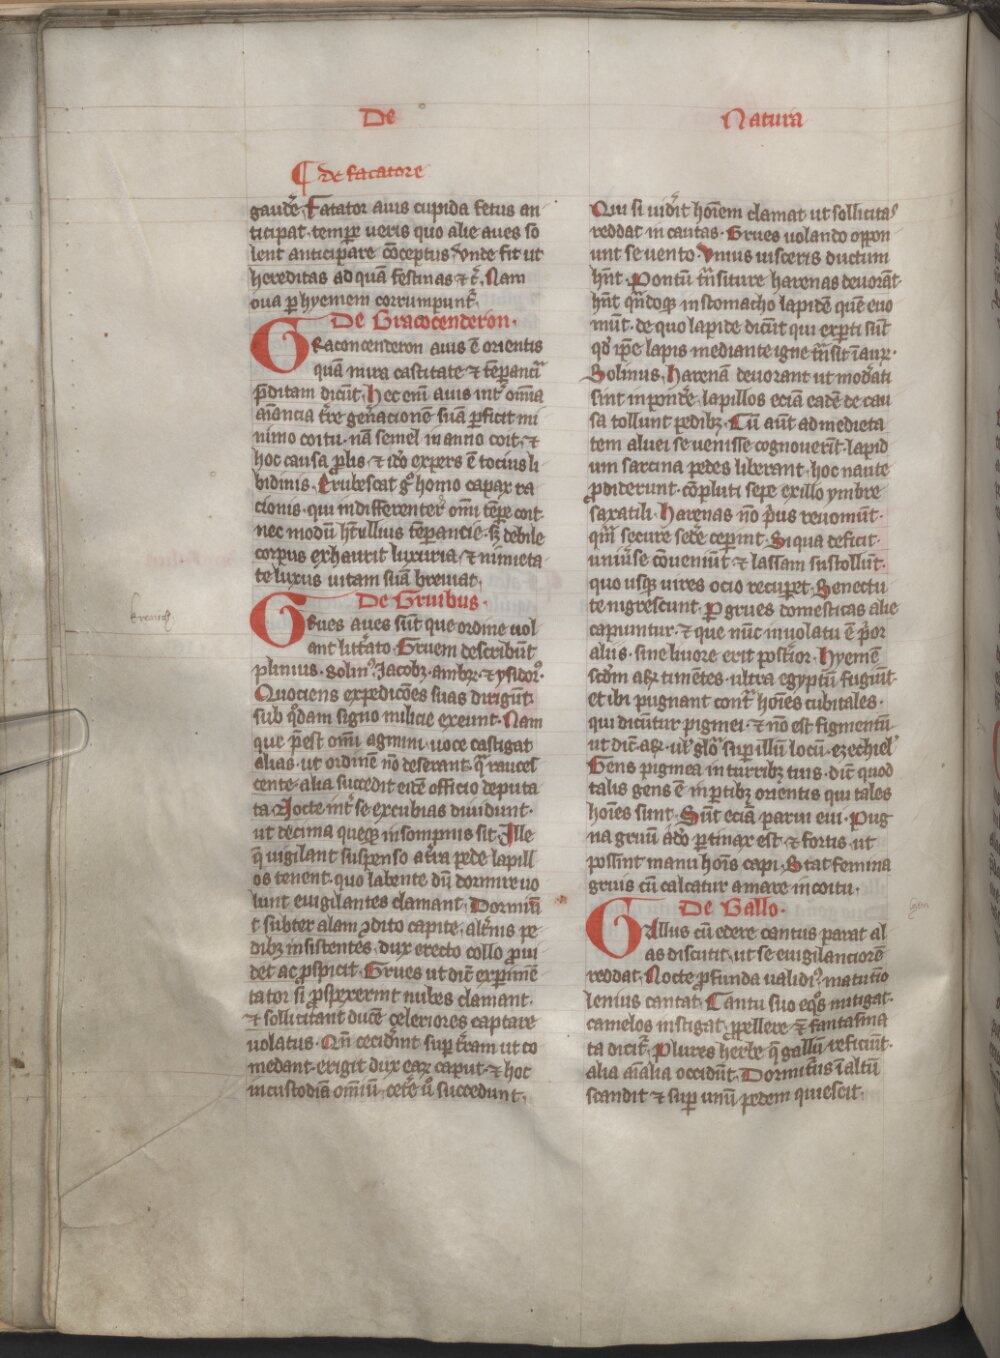 De
Natura
¶ de facatore
gaudẽ. Fatator auis cupida fetus an
ticipat tempꝛe ueris quo alie aues so
lent anticipare cõceptus. vnde fit ut
hereditas ad quã festinas ⁊ c̃. Nam
oua ꝑ hyemem corrumpunt᷑.
De Gracocenderon.
Graconcenderon auis ẽ orientis
quã mira castitate ⁊ tẽꝑancia
p̃ditam dicũt. Hec enĩ auis int᷑ om̃ia
aĩancia t̃re geñacionẽ suã ꝑficit mi
nimo coitu. nã semel in anno coit. ⁊
hoc causa ꝓlis. ⁊ iõ expers ẽ tocius li
bidinis. Erubescat gͦ homo capax ra
cionis. qui indifferent᷑ om̃i tẽꝑe coit
nec modũ hȝ ullius tẽꝑancie. sȝ debile
corpus exhaurit luxuria. ⁊ nimieta
te luxus uitam suã breuiat.
De Gruibus.
Grues aues sũt que ordine uol
ant lit᷑ato. Gruem describũt
plinius. solinꝰ. Jacobꝫ. ambꝛ. ⁊ ysidorꝰ.
Quociens expedicões suas dirigũt.
sub qͦdam signo milicie exeunt. Nam
que p̃est om̃i agmini uoce castigat
alias. ut ordinẽ nõ deserant. q̃ rauces
cente. alia succedit eidẽ officio deputa
ta. Nocte int᷑ se excubias diuidunt.
ut decima queqꝫ in sompnis sit. Ille
q̃ uigilant suspenso alt᷑a pede lapill
os tenent. quo labente dũ dormire uo
lunt euigilantes clamant. Dormiũ
t subter alam ꝯdito capite. alt᷑nis pe
dibꝫ insistentes. dux erecto collo ꝓui
det ac ꝓspicit. Grues ut dic̃ experimẽ
tator si ꝓspexerint nubes clamant.
⁊ sollicitant ducẽ celeriores captare
uolatus. Qñ cecid᷑int suꝑ t̃ram ut co
medant. erigit dux eaꝝ caput. ⁊ hoc
in custodiã om̃iũ. cet᷑e uͦ succedunt.
Qui si uid᷑it hoĩem clamat ut sollicitas
reddat in cautas. Grues uolando oppon
unt se uento. Vnius uisceris ductum
hñt. Pontũ tñsiture harenas deuorãt.
hñt qñdoqꝫ in stomacho lapidẽ quẽ euo
mũt. de quo lapide dicũt qui exꝑti sũt
qͦd ip̃e lapis mediante igne tñsit ĩ auꝝ.
Solinus. Harenã deuorant ut mod᷑ati
sint in pond᷑e. lapillos eciã eadẽ de cau
sa tollunt pedibꝫ. Cũ aũt ad medieta
tem aluei se uenisse cognouerĩt. lapid
um sarcina pedes liberant. hoc naute
ꝓdiderunt. cõpluti sepe ex illo ymbre
saxatili. Harenas nõ p̃us reuomũt.
qm̃ secure sed᷑e ceperint. Si qua deficit
uniu᷑se cõueniũt. ⁊ lassam sustollũt.
quo usqꝫ uires ocio recuꝑet. Senectu
te nigrescunt. ꝑ grues domesticas alie
capiuntur. ⁊ que nũc in uolatu ẽ p̃or
aluis. sine liuore erit post᷑ior. Hyemẽ
scd̃m aꝝ timẽtes. ultra egyptũ fugiũt.
et ibi pugnant cont᷑ hoĩes cubitales.
qui dicũtur pigmei. ⁊ nõ est figmentũ
ut dic̃ aꝝ. uñ glõ suꝑ illũ locũ. ezechiel
Gens pigmea in turribꝫ tuis. dic̃ quod
talis gens ẽ in ꝑtibꝫ orientis qui tales
hoĩes sunt. Sũt eciã parui eui. Pug
na gruũ adõ ꝑtinax est. ⁊ fortis. ut
possint manu hoĩs capi. Stat femina
gruis cũ calcatur a mare in coitu.
De Gallo.
Gallus cũ edere cantus parat al
as discutit. ut se euigilanciorẽ
reddat. Nocte ꝓfunda ualidiꝰ. matutĩo
lenius cantat. Cantu suo eqͦs mitigat.
camelos instigat. ꝓpellere ⁊ fantasma
ta dicit᷑. Plures herbe q̃ gallũ reficiũt.
alia aĩalia occidũt. Dormit᷑us ĩ altũ
scandit ⁊ suꝑ unũ pedem quiescit.